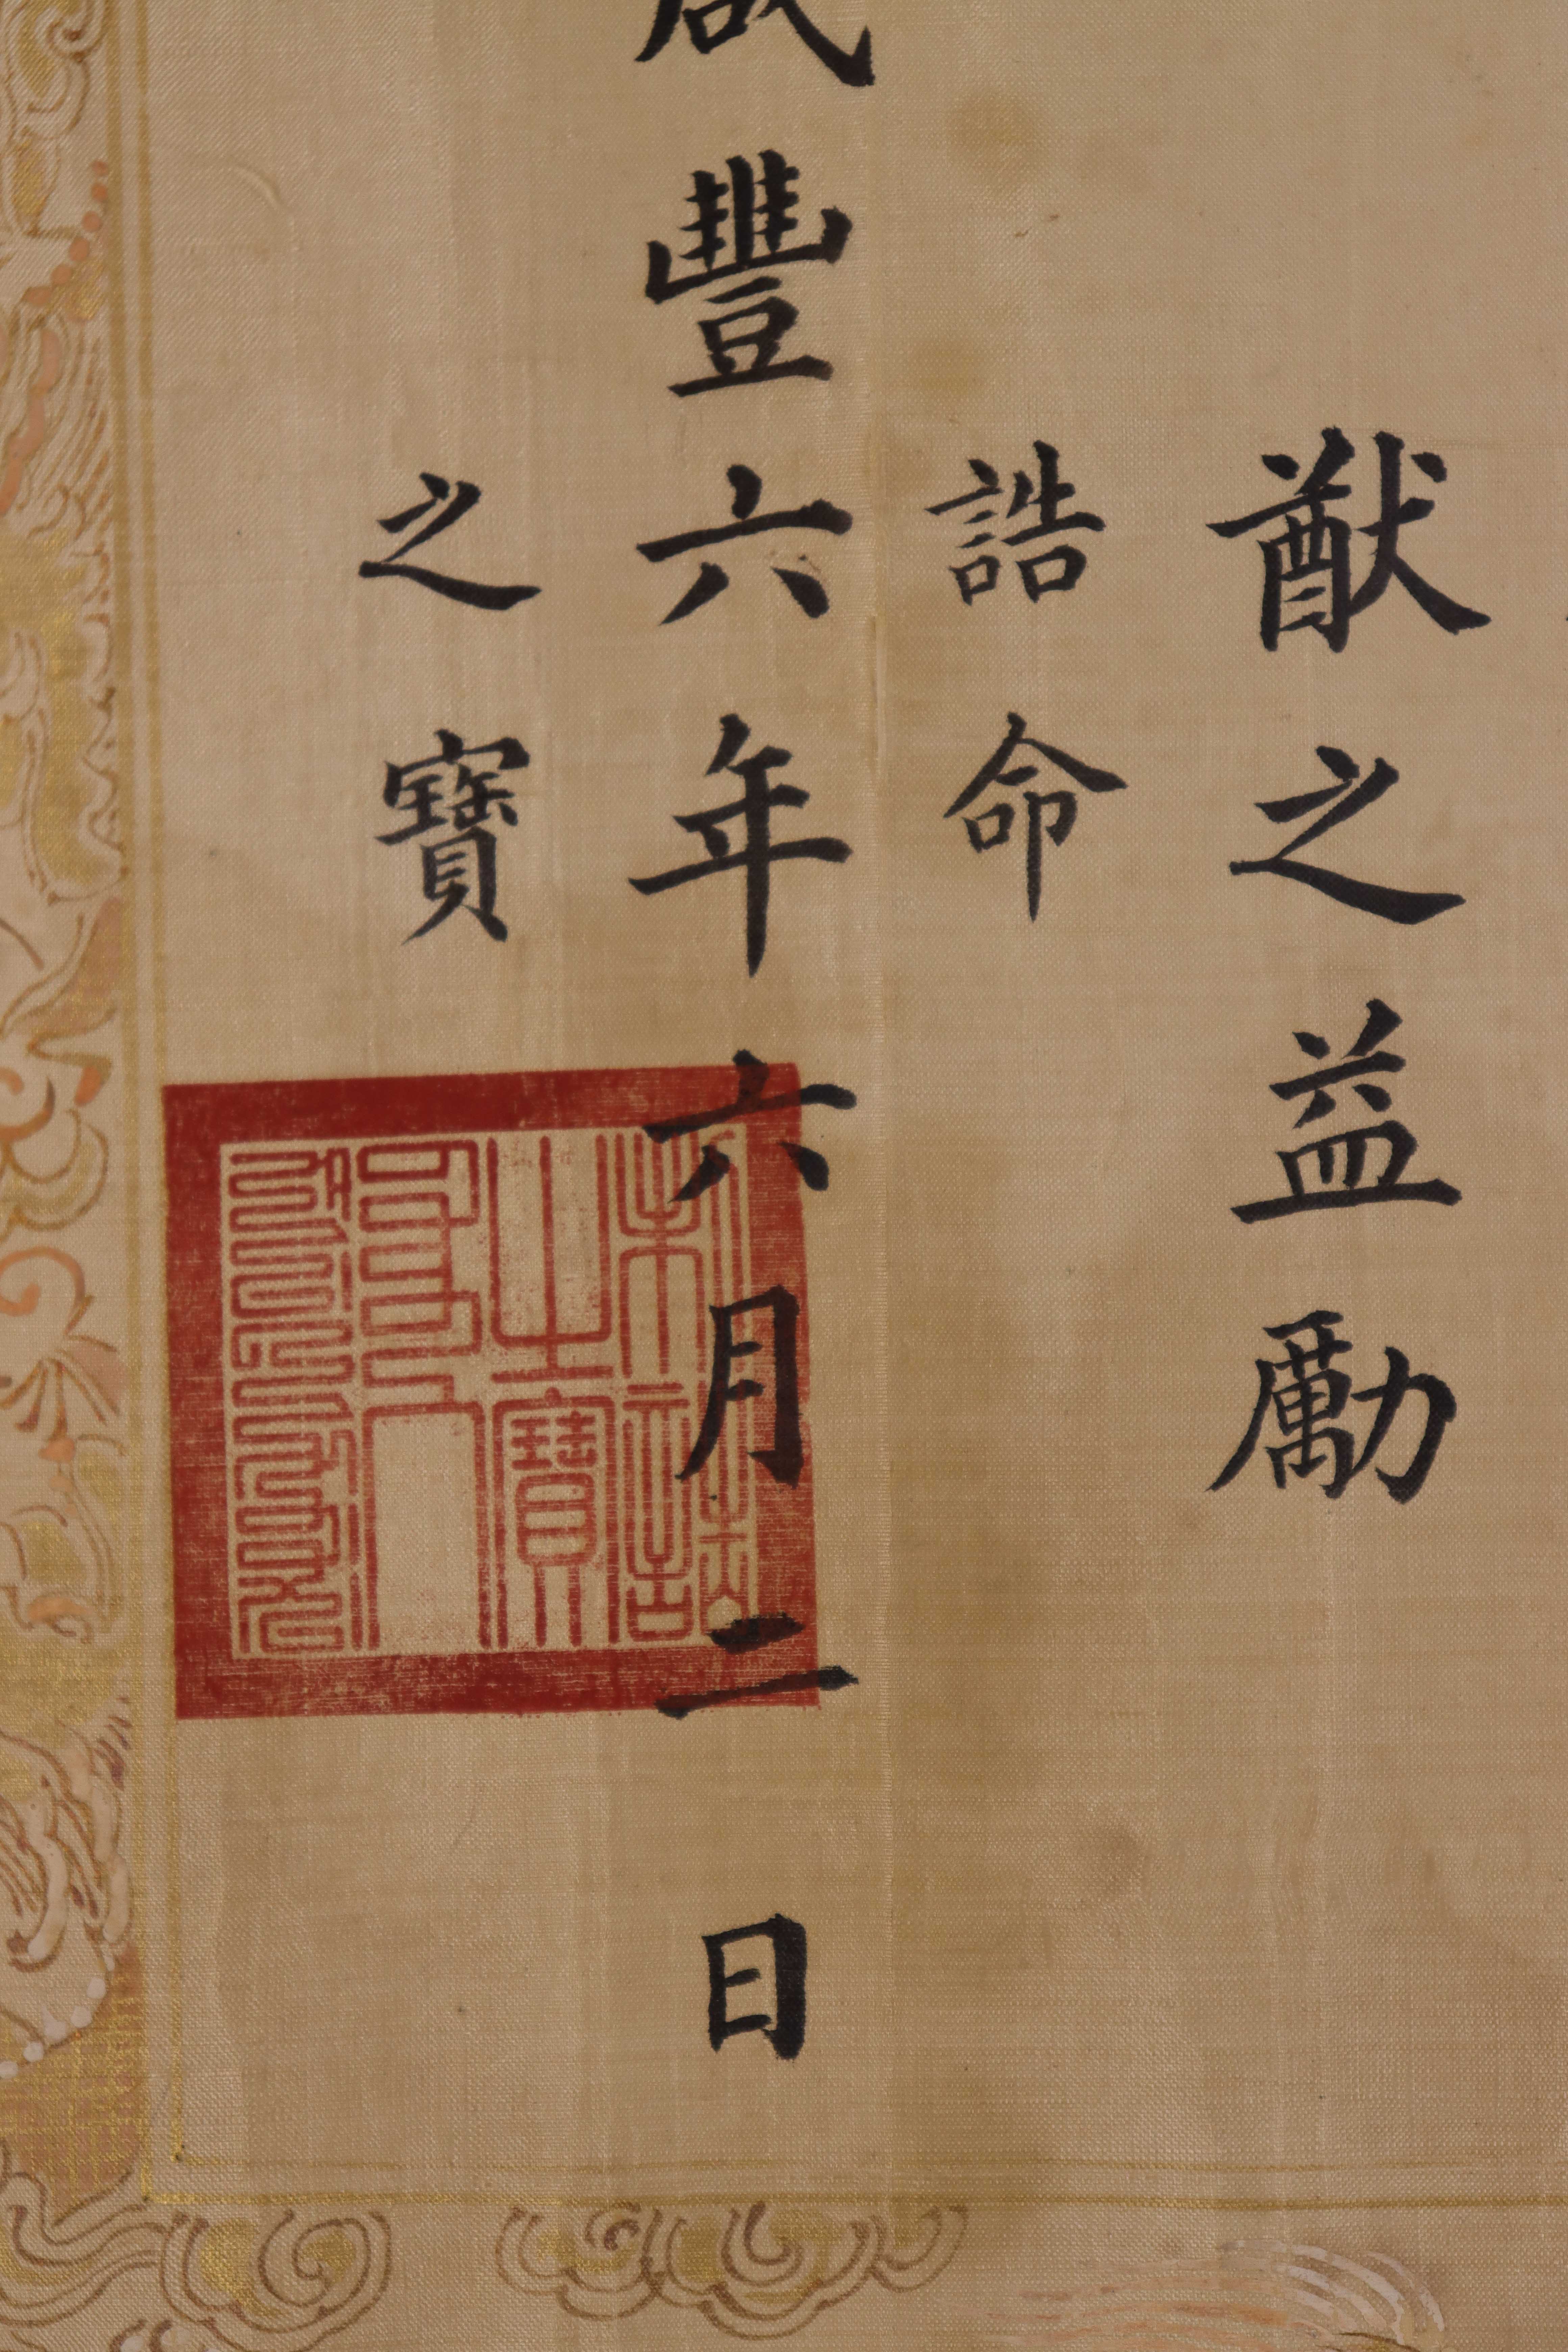 猷之益勵
誥命
咸豐六年六月二日
之寶
制誥
之寶